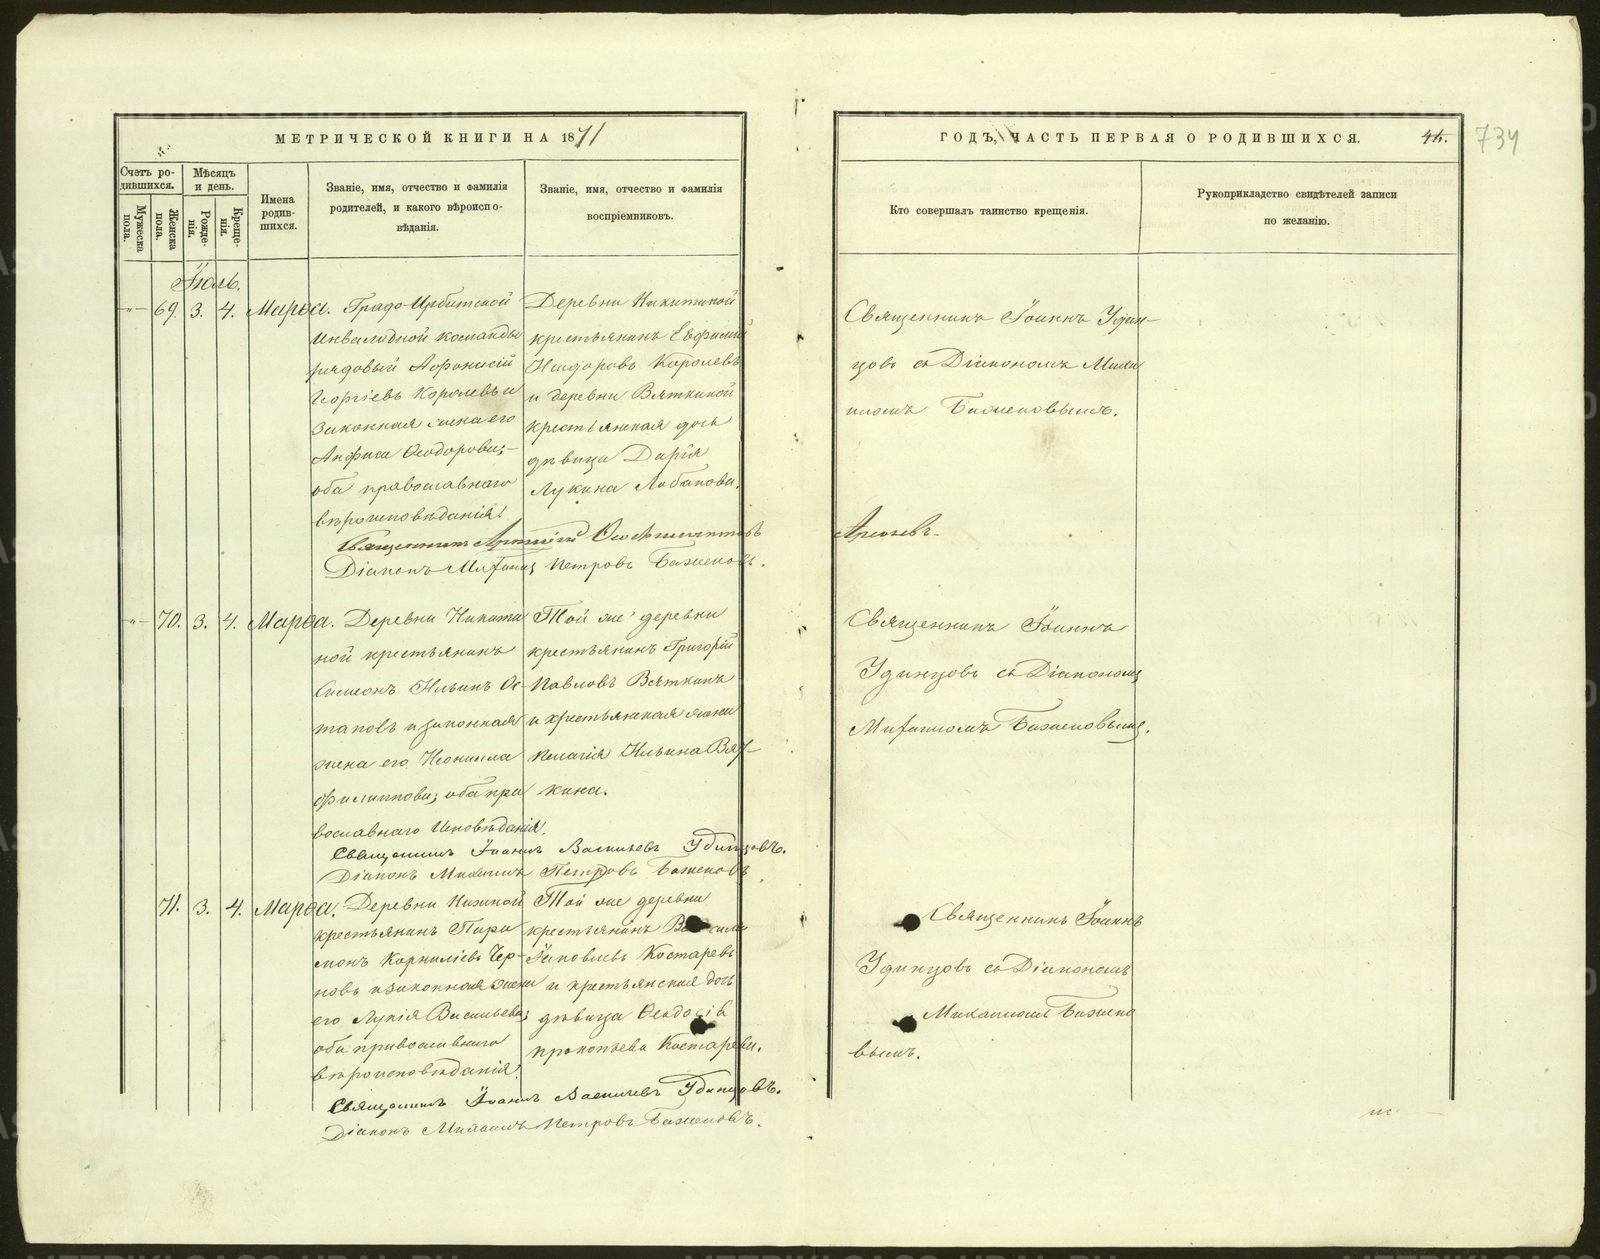 МЕТРИЧЕСКОЙ КНИГИ НА 1871
Счетъ родившихся.
Мужеска пола.
Женска пола.
Мѣсяцъ и день.
Рожденія.
Крещенія.
Имена родившихся.
Званіе, имя, отчество и фамилія родителей, и какого вѣроисповѣданія.
Званіе, имя, отчество и фамилія воспріемниковъ.
Іюль.
69. 3. 4. Марѳа.
Градо-Ирбитской
инвалидной команды
рядовый Аѳонасій
Георгіевъ Королевъ и
законная жена его
Анфиса Ѳеодорова;
оба православнаго
вѣроисповѣданія.
Деревни Никитиной
крестьянинъ Евфимій
Королевъ
и деревни Вяткиной
крестьянская дочь
дѣвица Дарія
Лукина Лобанова.
Священникъ
Діаконъ Михаилъ Петровъ Баженовъ.
70. 3. 4. Марѳа.
Деревни Никити
ной крестьянинъ
Симеонъ Ильинъ Ос-
таповъ и законная
жена его Неонилла
Филиппова; оба пра
вославнаго исповѣданія.
Той же деревни
крестьянинъ Григорій
Павловъ Вяткинъ
и крестьянская жена
Пелагія Ильина Вят-
кина.
Священникъ Іоаннъ Васильевъ Удинцовъ.
Діаконъ Михаилъ Петровъ Баженовъ
71. 3. 4. Марѳа.
Деревни Нижной
крестьянинъ Пара
монъ Корниліевъ Чер-
новъ и законная жена
его Лукія Васильева;
оба православнаго
вѣроисповѣданія.
Той же деревни
крестьянинъ
Іаковлевъ Костаревъ
и крестьянская дочь
дѣвица Ѳеодосія
Прокопьева Костарева.
Священникъ Іоаннъ Васильевъ Удинцовъ.
Діаконъ Михаилъ Петровъ Баженовъ.
ГОДЪ, ЧАСТЬ ПЕРВАЯ О РОДИВШИХСЯ.
734
Кто совершалъ таинство крещенія.
Рукоприкладство свидѣтелей записи
по желанію.
Священникъ Іоаннъ Удин-
цовъ съ Діакономъ Миха
иломъ Баженовымъ.
Священникъ Іоаннъ
Удинцовъ съ Діакономъ
Михаиломъ Баженовымъ.
Священникъ Іоаннъ
Удинцовъ съ Діакономъ
Михаиломъ Бажено
вымъ.